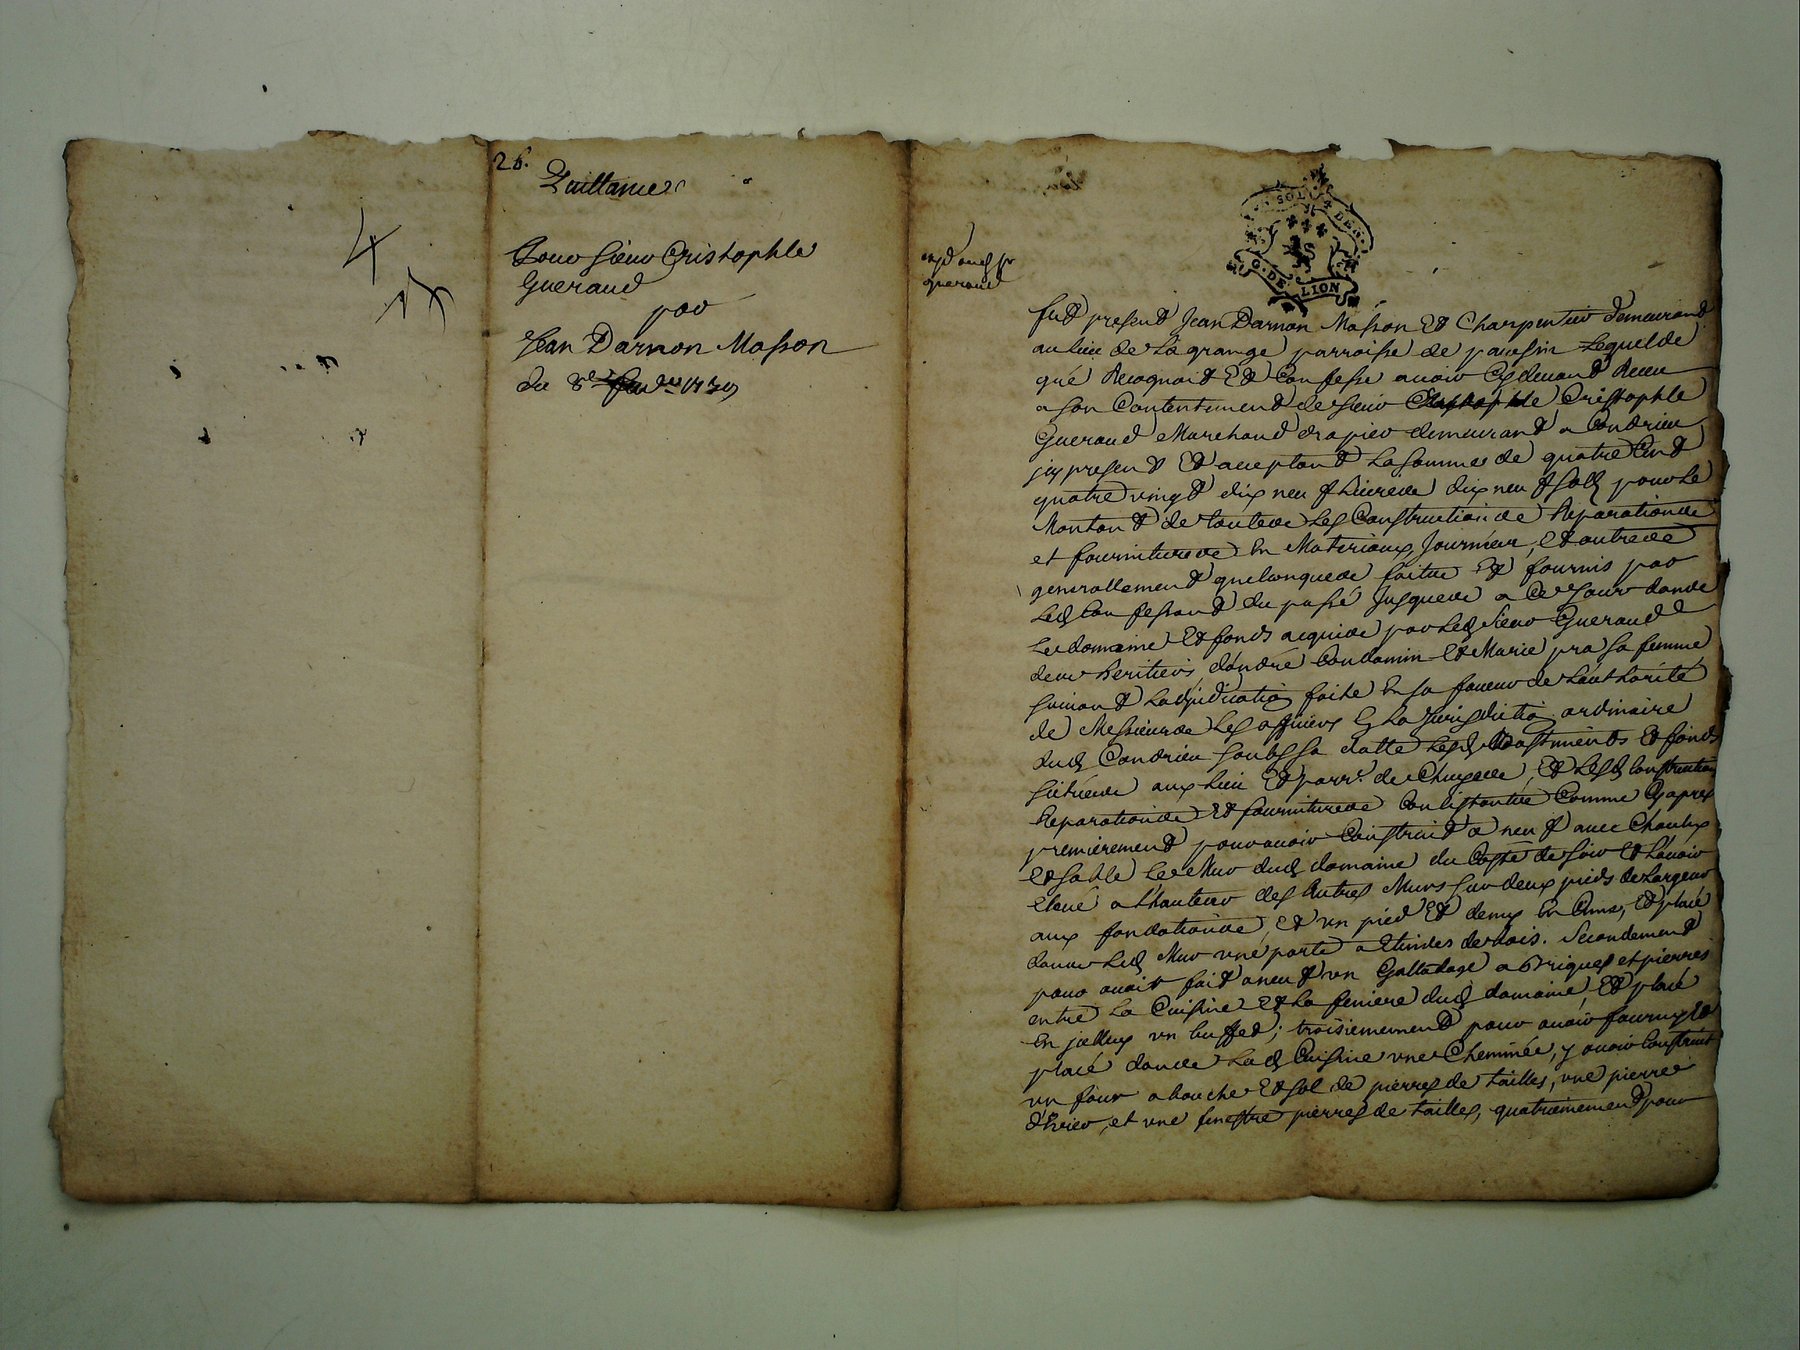 4
25.
Quittance
Pour sieur Cristophle
Gueraud
par
Jean Darnon Masson
du 8e
expédié aud sr
gueraud
SOLS 4 DEN.
G. DE LION
fut present Jean Darnon Masson et Charpentier demeurant
au lieu de la grange parroisse de pavesin lequel de
gré Recognoit et Confesse avoir Cydevant Receu
a son Contentement de sieur Cristophle
Gueraud Marchand drapier demeurant a Condrieu
icy present et acceptant la somme de quatre Cent
quatre vingt dix neuf livres dix neuf sols pour le
Montant de toutes les Constructions Reparations
et fournitures en Materiaux, Journées, et autres
generallement quelconques faites et fournis par
led Confessant du passé Jusques a Ce Jour dans
le domaine et fonds acquis par led sieur Gueraud
des heritiers d'andré Condamin et Marie pra sa femme
suivant ladjudication faite en sa faveur de lauthorité
de Messieurs les officiers en la Jurisdiction ordinaire
dud Condrieu soubs sa datte lesd Bastiments et fonds
situés aux lieu et parre. de Chuyes, et lesd Constructions
Reparations et fournitures Consistantes Comme Cyapres
premierement pour avoir Construit a neuf avec Chaulx
et sable le Mur dud domaine du Costé de soir et l'avoir
elevé a l'hauteur des Autres Murs sur deux pieds de largeur
aux fondations, et un pied et demy en Cime, et placé
dans led Mur une porte a de bois. Secondement
pour avoir fait a neuf un Gallatage a Briques et pierres
entre la Cuisine et la feniere dud domaine, et placé
en jcelluy un buffet; troisiemement pour avoir fourny et
placé dans lad Cuisine une Cheminée, y avoir Construit
un four a bouche et sol de pierres de tailles, une pierre
d'hevier, et une fenestre pierres de tailles, quatriemement pour